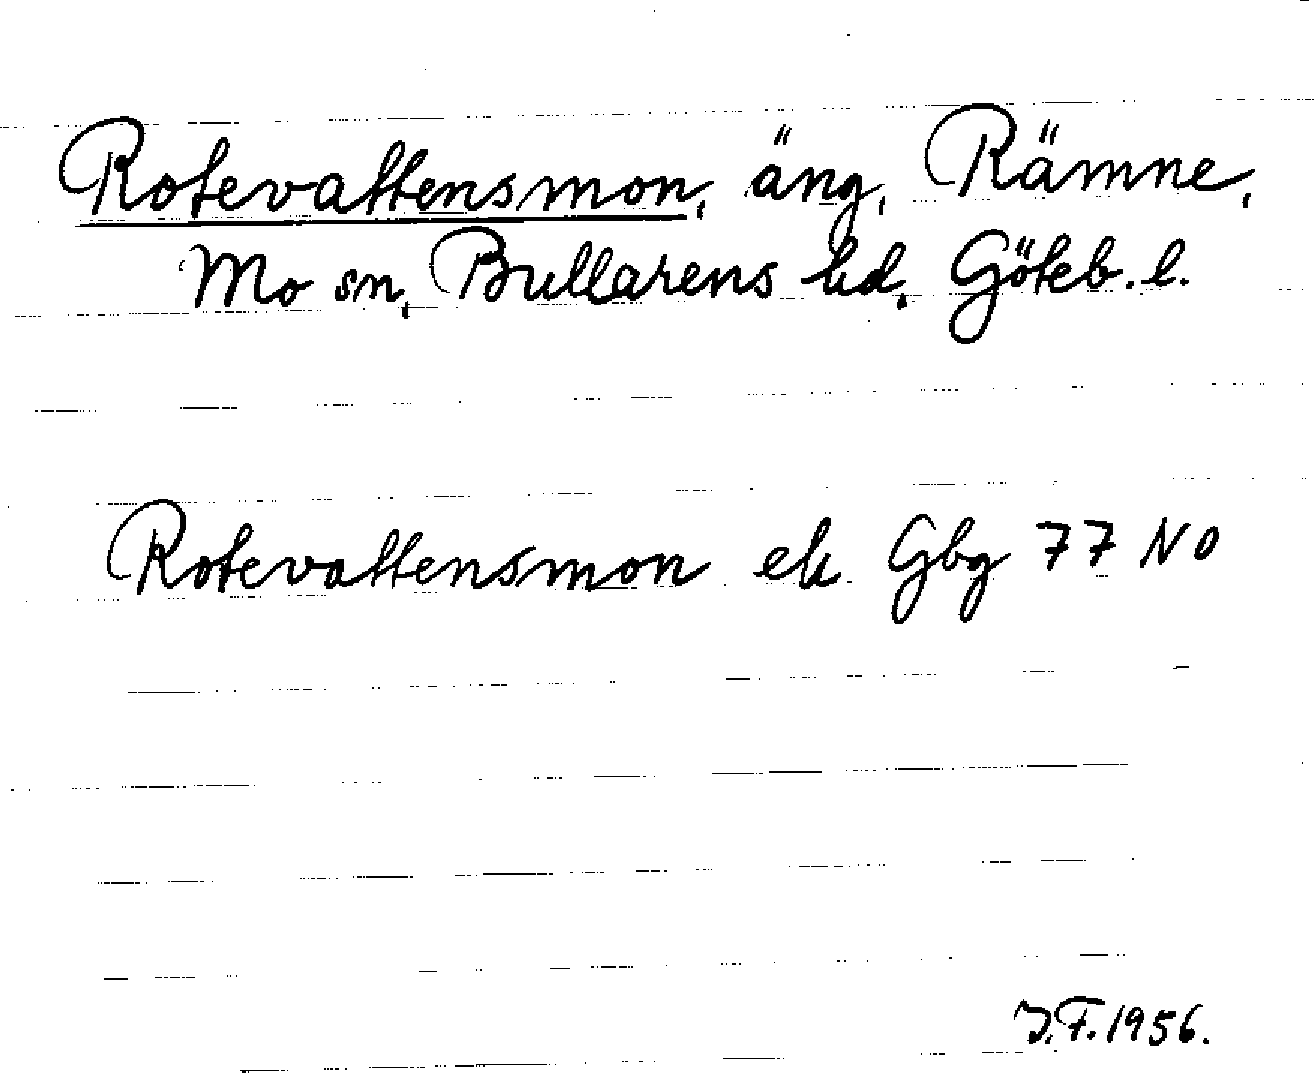 Rotevattensmon, äng, Rämne,
Mo sn, Bullarens hd, Göteb. l.
Rotevattensmon ek Gbg 77 NO
J.F. 1956.